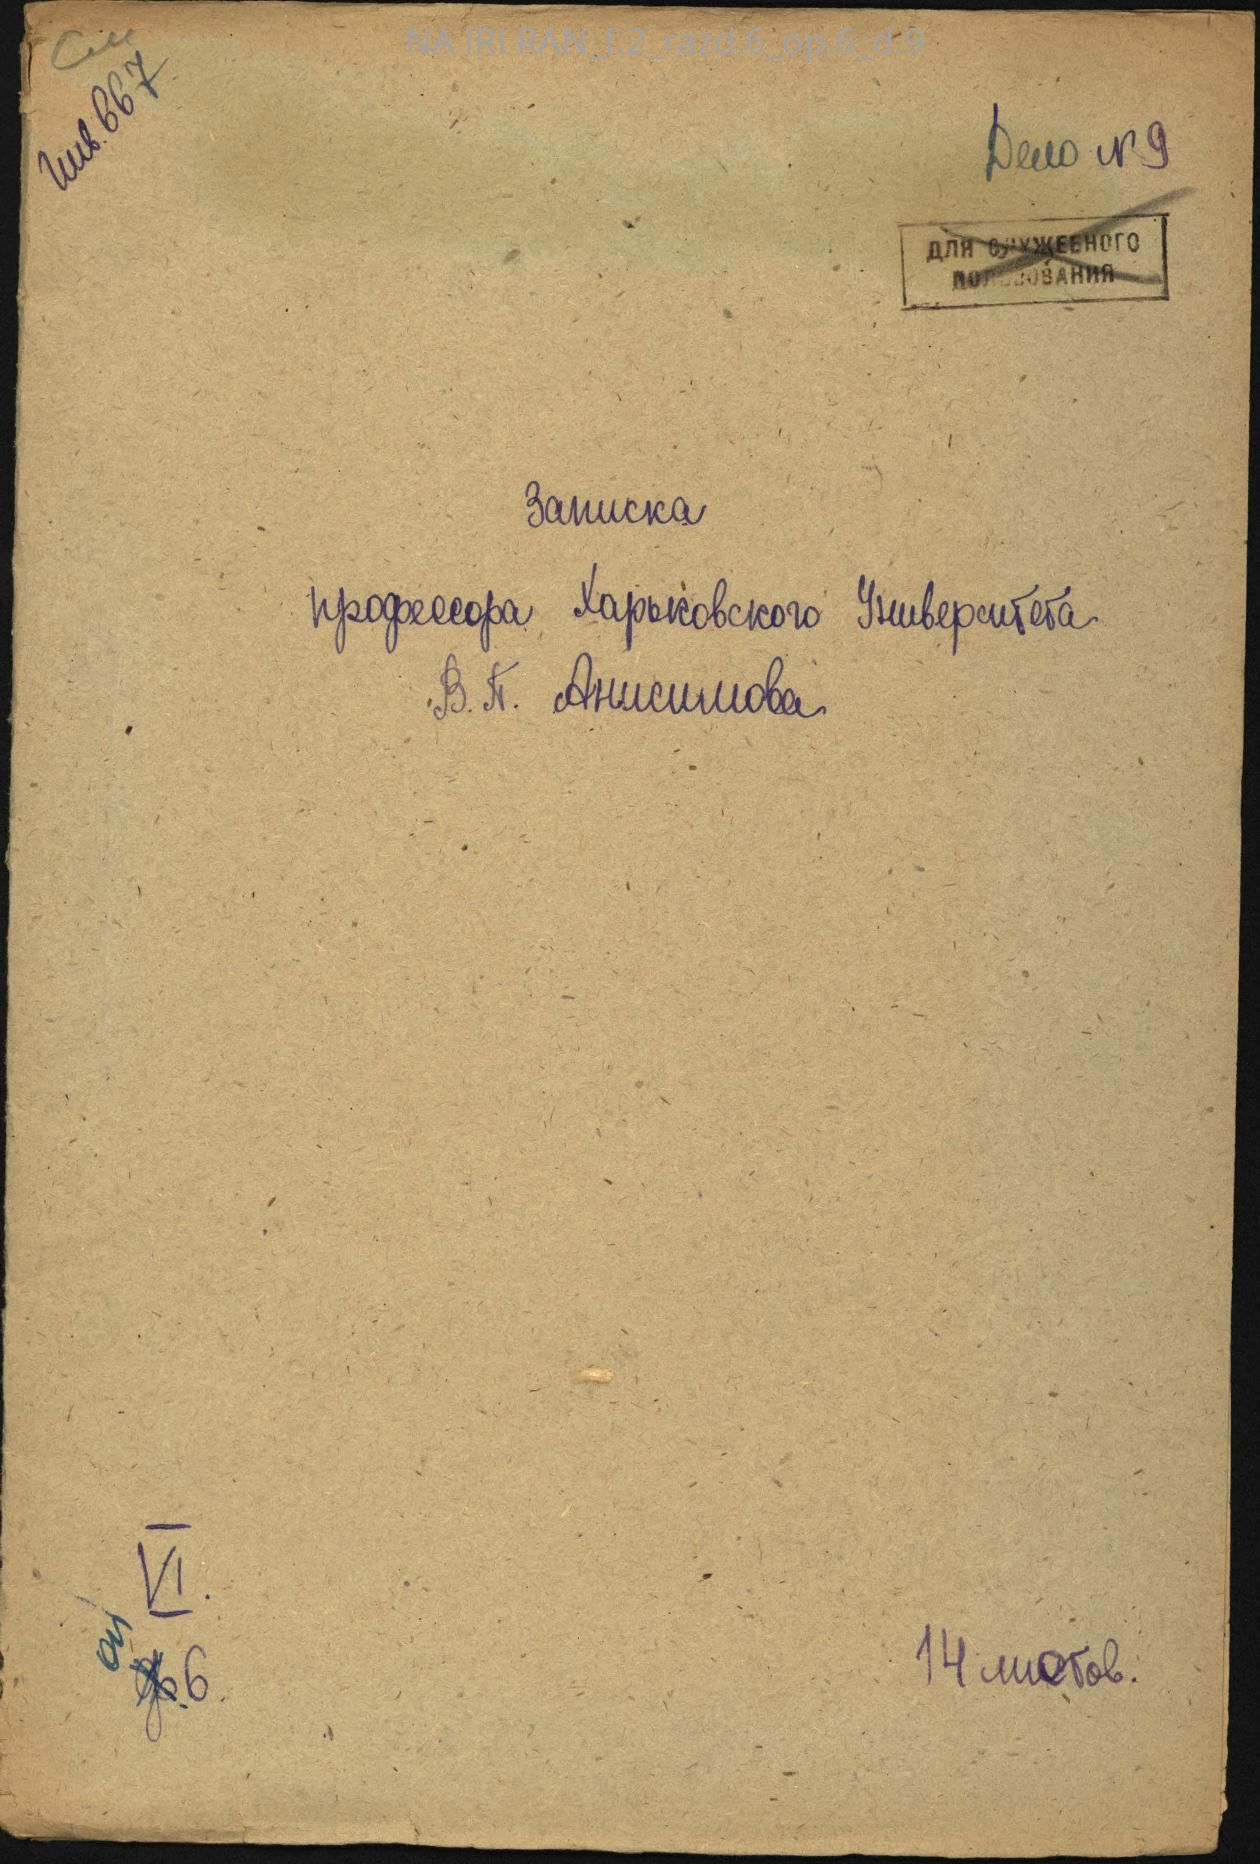 NA IRI RAN_f.2_razd.6_op.6_d.9
См
Инв. 667
Дело № 9
ДЛЯ СЛУЖЕБНОГО
ПОЛЬЗОВАНИЯ
Записка
профессора Харьковского Университета
В.П. Анисимова
VI.
оп
6.
14 листов.